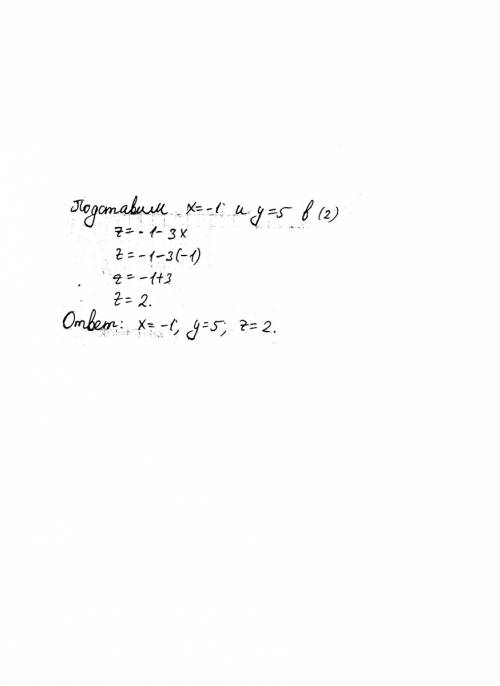 Подставим x=-1 и y=5 в (2)
z=-1-3x
z=-1-3(-1)
z=-1+3
z=2.
Ответ: x=-1; y=5; z=2.